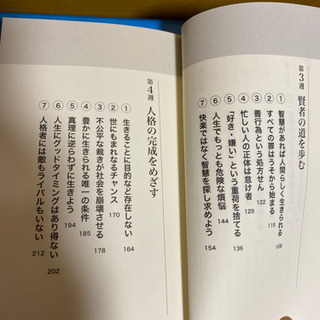 第3週 賢者の道を歩む
① 智慧があれば人間らしく生きられる 108
② すべての罪はうそから始まる 115
③ 善行為という処方せん 122
④ 忙しい人の正体は怠け者 129
⑤ 「好き・嫌い」という重荷を捨てる 136
⑥ 人生でもっとも危険な煩悩 144
⑦ 快楽ではなく智慧を探し求めよう 154
第4週 人格の完成をめざす
① 生きることに目的など存在しない 164
② 世にもまれなるチャンス 170
③ 不公平な裁きが社会を崩壊させる 178
④ 豊かに生きられる唯一の条件 185
⑤ 真理に逆らわずに生きよう 194
⑥ 人生にグッドタイミングはあり得ない 202
⑦ 人格者には敵もライバルもいない 212